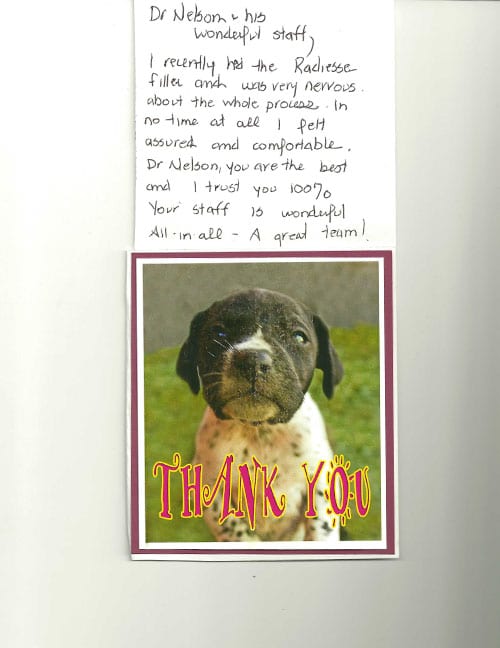 Dr Nelson & his
wonderful staff,
I recently had the Radiesse
filler and was very nervous.
about the whole process. In
no time at all I felt
assured and comfortable.
Dr Nelson, you are the best
and I trust you 100%
Your staff is wonderful
All-in-all - A great team!
THANK YOU